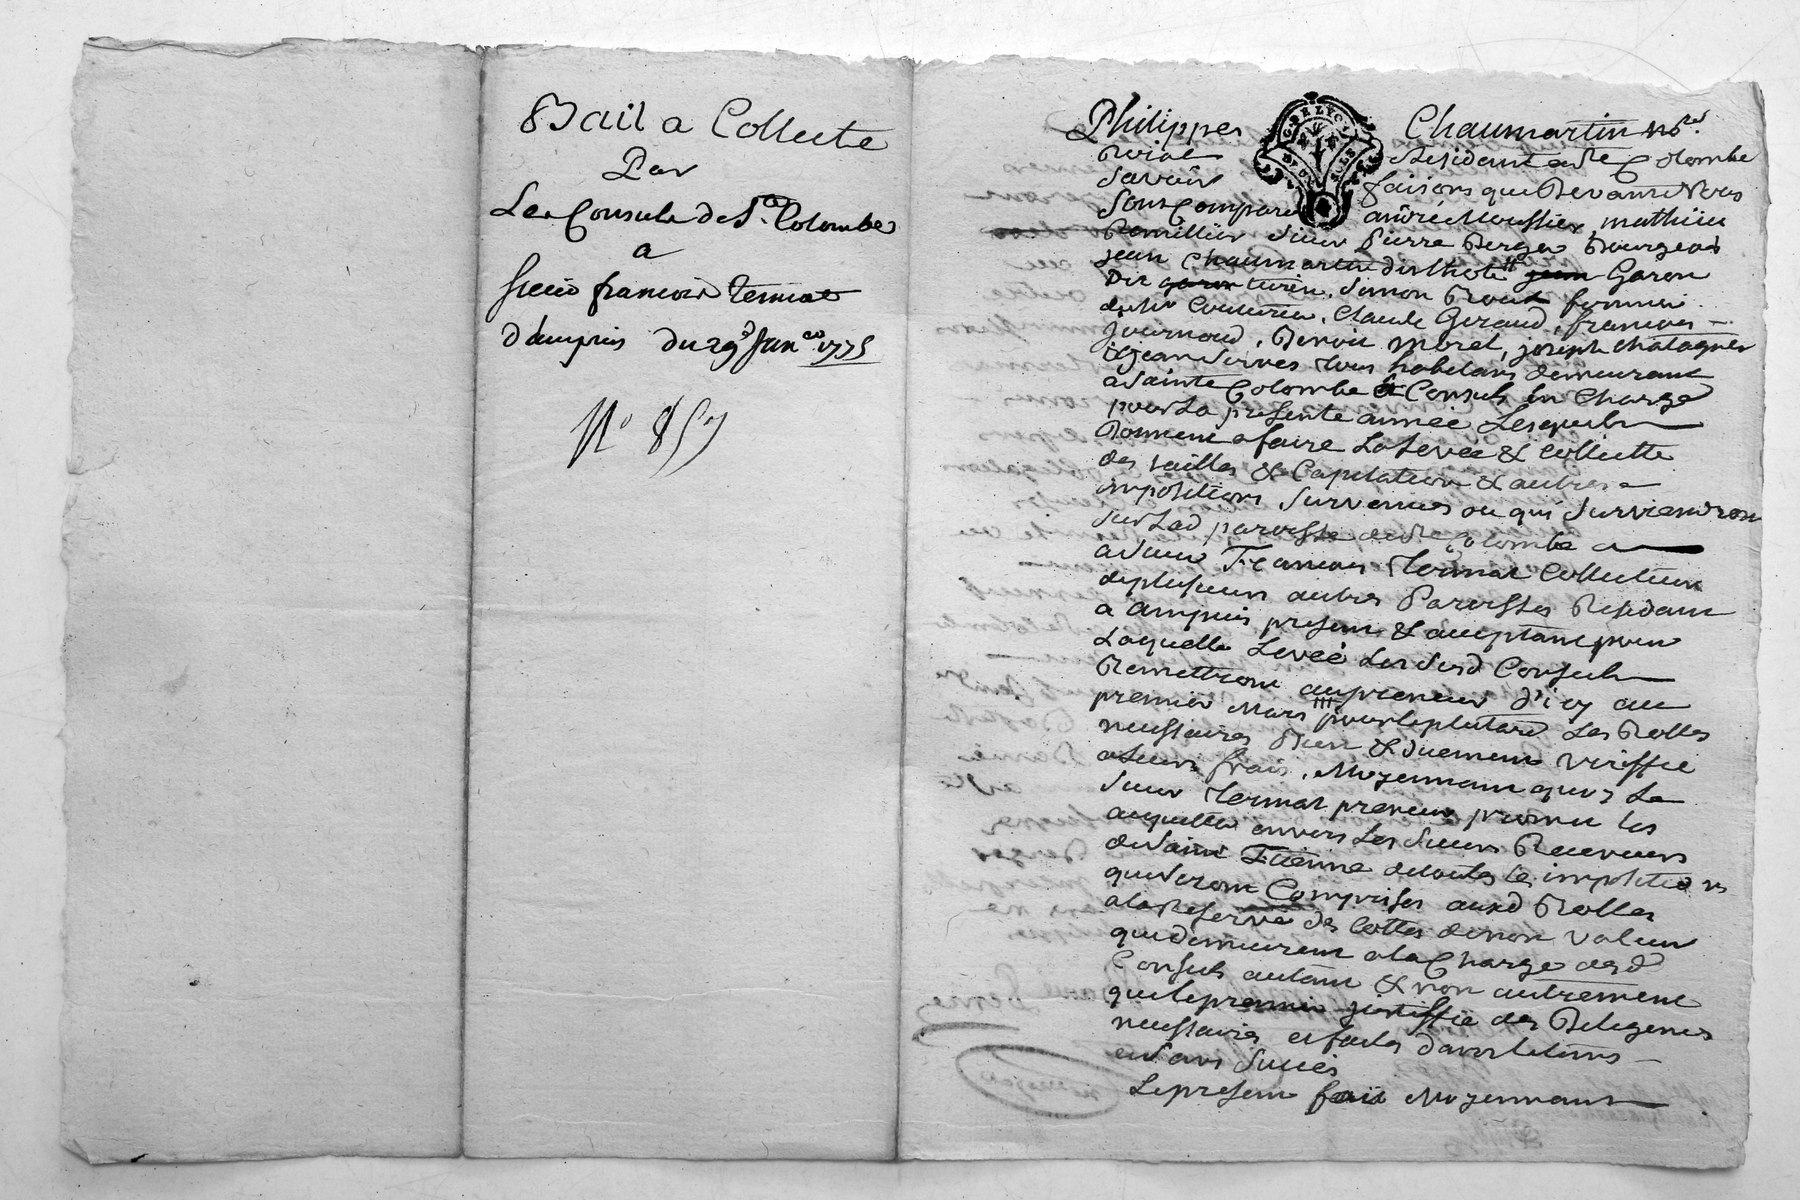 Bail a Collecte
Par
Les Consuls de Ste. Colombe
a
Sieur francois Termat
d'ampuis du 29e Janer 1775
No 857
Philippes Chaumartin nore.
Roial Residant a Ste Colombe
Savoir faisons que Devant Nous
Sont Comparu andré Moussier, mathieu
Remillier Sieur Pierre Berger Bourgeois
jean Chaumartin dit Lhoti jean Garon
Dit garon Simon fermier
Claude Giraud, francois
journoud, Benoit Morel, joseph chatagner
& jean Servos tous habitans demeurant
a Sainte Colombe & Consuls en Charge
pour La presente année Lesquels
Donnent a faire La Levée & Collecte
des tailles & Capitation & autres
impositions Survenues ou qui Surviendront
Sur Lad paroisse de Ste Colombe a
a Sieur Francois Termat Collecteur
de plusieurs autres Paroisses Residant
a ampuis present & acceptant pour
Laquelle Levée Lesdits Consuls
Remettront au preneur d'icy au
premier Mars pour le plutard Les Rolles
necessaires Bien & Duement Viriffié
a Leurs frais, Moyennant quoy Le
Sieur Termat preneur promet les
aquitter envers Les Sieurs Receveurs
de Saint Etienne de toutes les impositions
qui Seront Comprises auxd Rolles
a la Reserve des Cottes de non valeur
qui demeurent a la Charge desd
Consuls autant & non autrement
que le premier justiffie des Diligences
necessaires et faites
et Sans Succès
Le present fait Moyennant